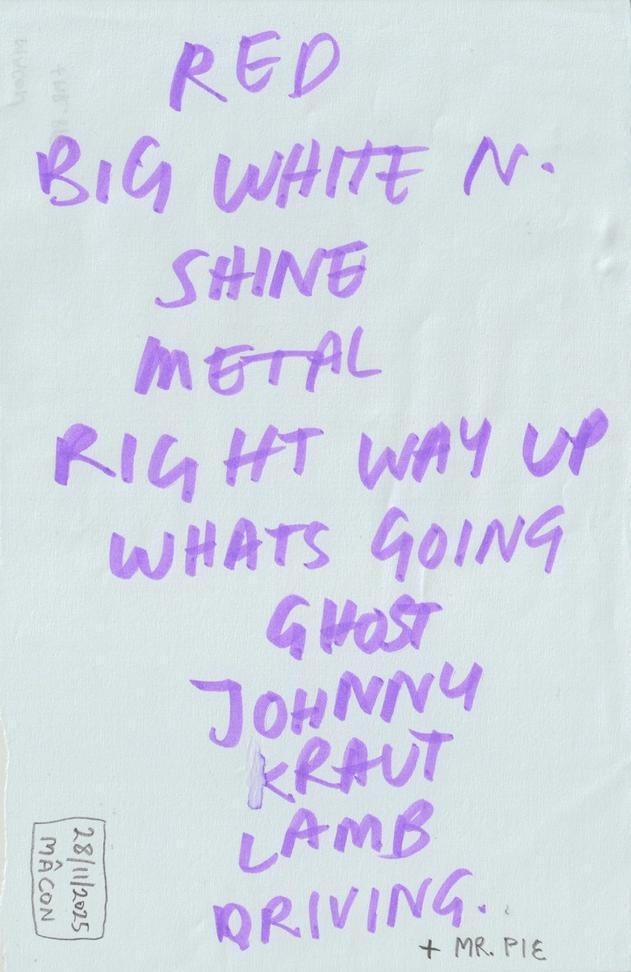 RED
BIG WHITE N.
SHINE
METAL
RIGHT WAY UP
WHATS GOING
GHOST
JOHNNY
KRAUT
LAMB
DRIVING.
+ MR. PIE
28/11/2025
MÂCON